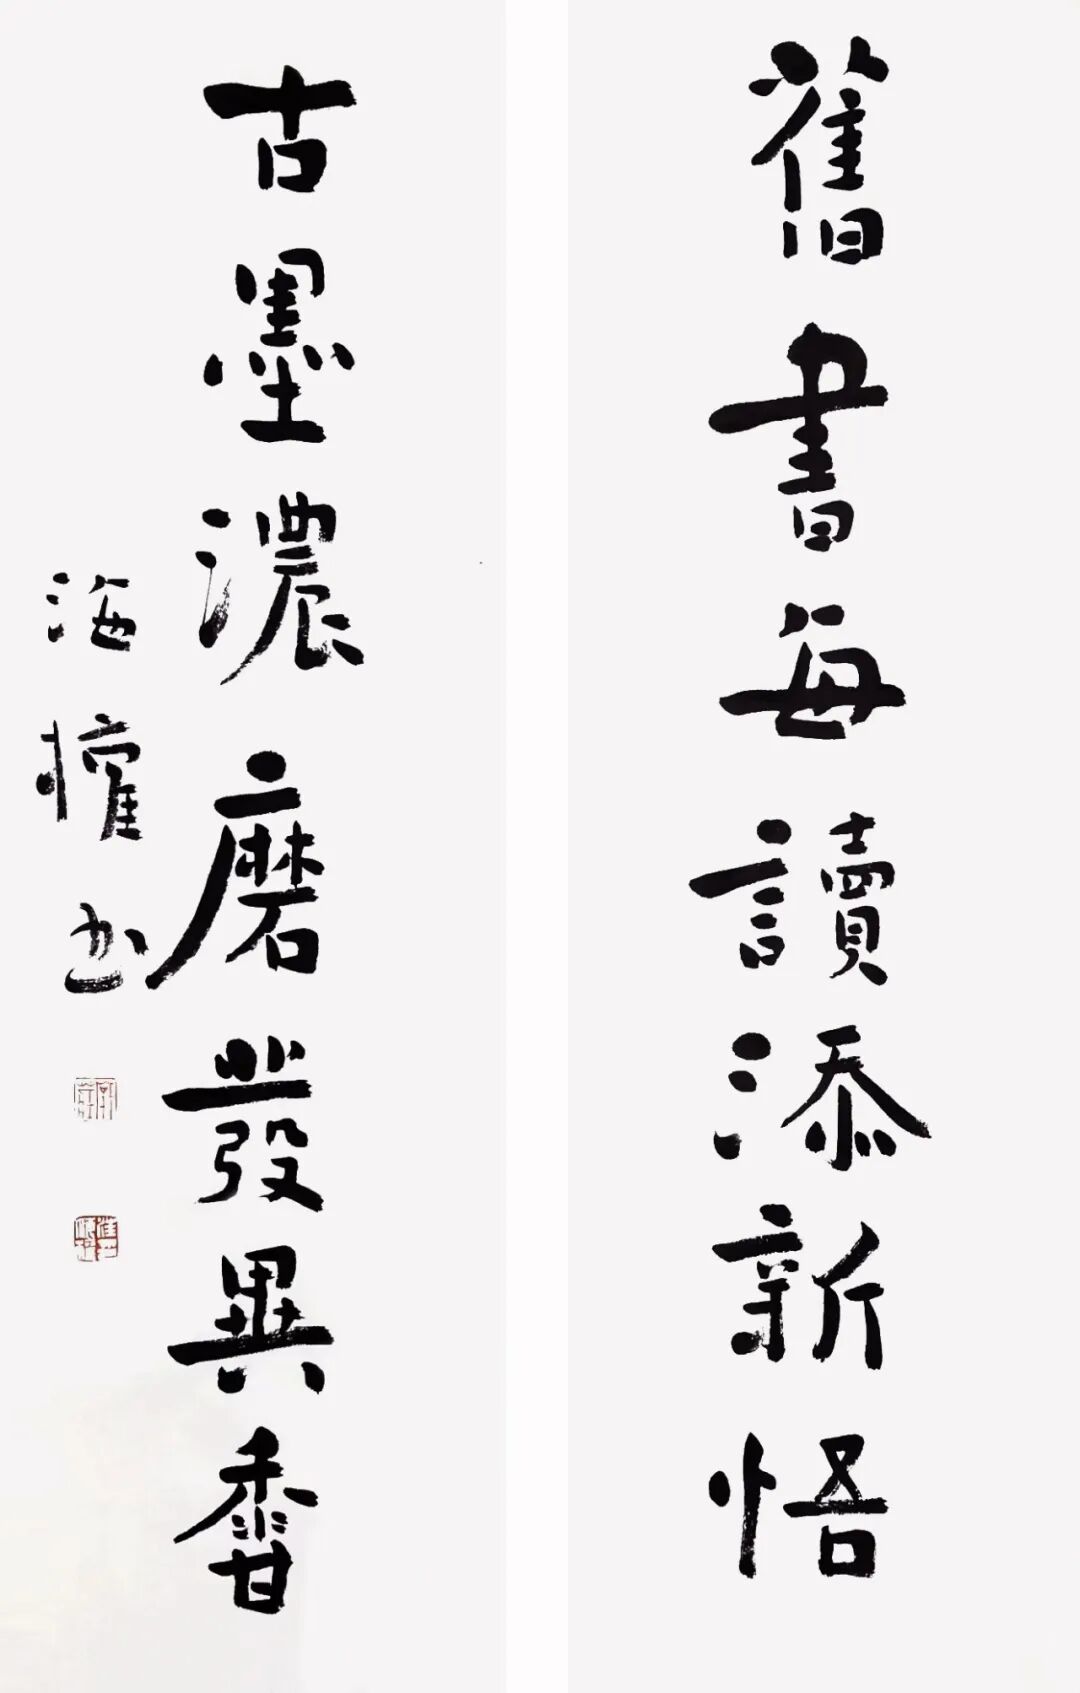 舊書每讀添新悟
古墨濃磨發異香
海權书